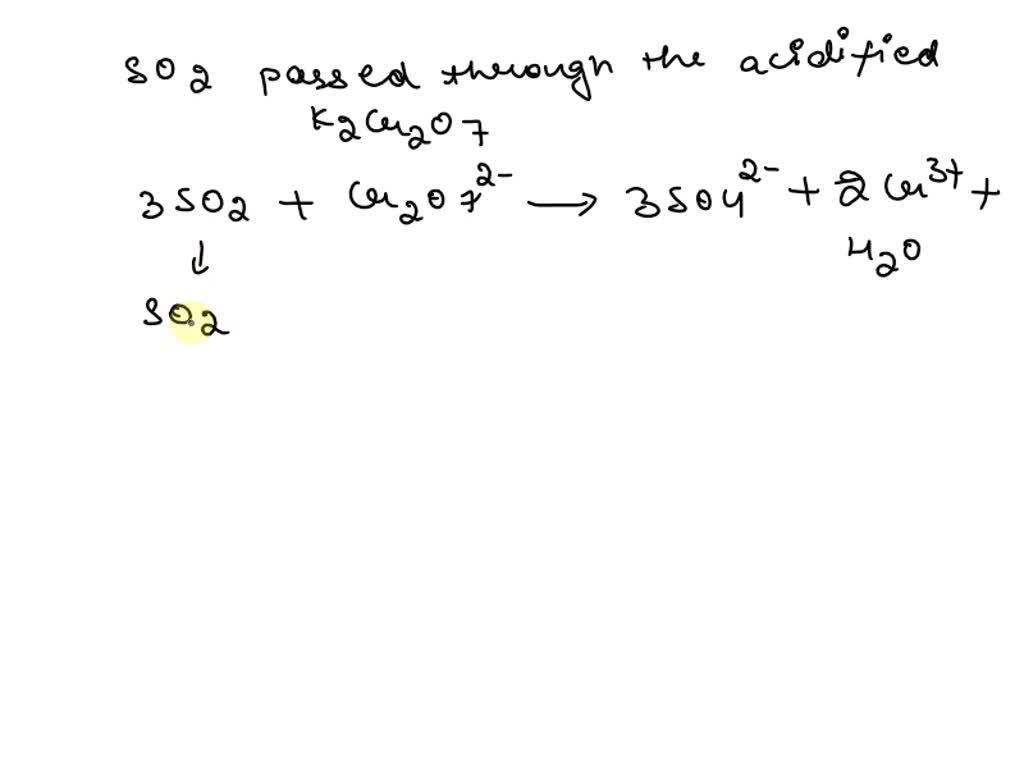 SO2 passed through the acidified
K2Cr2O7
3SO2 + Cr2O7^2- → 3SO4^2- + 2Cr^3+ +
H2O
↓
SO2